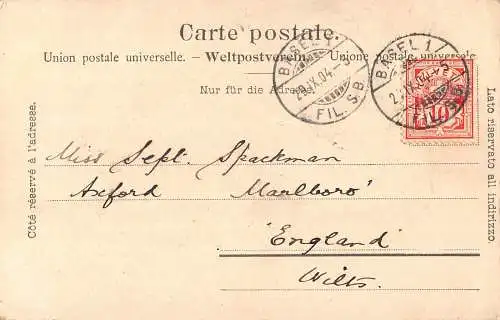 Carte postale.
Union postale universelle. – Weltpostverein. – Unione postale universale
Nur für die Adresse
BASEL 1
FIL. S.B.
BASEL 1
FIL. S.B.
10
Côté réservé à l'adresse.
Lato riservato all indirizzo.
Miss Sept. Spackman
Axford Marlboro'
"England"
Wilts.